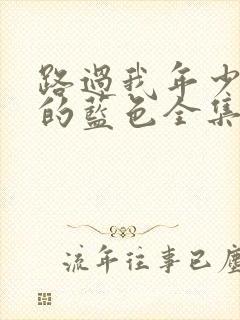 路過我年少
的藍色全集
流年往事已塵